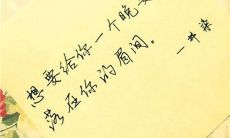 想要给你一个晚安
落在你的眉间。
一井柒